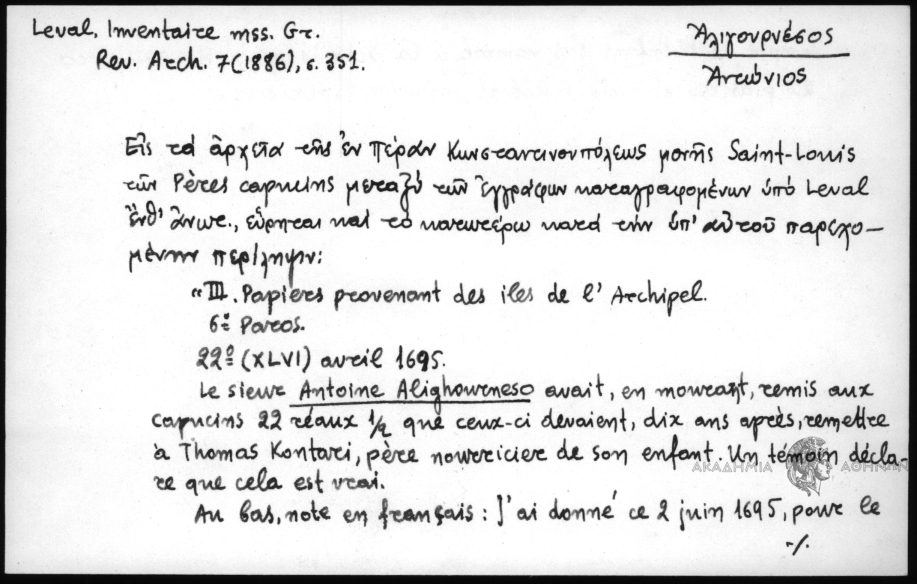 Leval, Inventaire mss. Gr.
Rev. Arch. 7(1886), σ. 351.
Ἀλιγουρνέσος
Ἀντώνιος
Εἰς τὰ ἀρχεῖα τῆς ἐν Πέραν Κωνσταντινουπόλεως μονῆς Saint-Louis
τῶν Pères capucins μεταξὺ τῶν ἐγγράφων καταγραφομένων ὑπὸ Leval
ἔνθ' ἄνωτ., εὕρηται καὶ τὸ κατωτέρω κατὰ τὴν ὑπ' αὐτοῦ παρεχο-
μένην περίληψιν:
"III. Papiers provenant des iles de l' Archipel.
6º Paros.
22º (XLVI) avril 1695.
Le sieur Antoine Alighourneso avait, en mourant, remis aux
capucins 22 réaux 1/2 que ceux-ci devaient, dix ans après, remettre
à Thomas Kontari, père nourricier de son enfant. Un témoin décla-
re que cela est vrai.
ΑΚΑΔΗΜΙΑ ΑΘΗΝΩΝ
Au bas, note en français: J'ai donné ce 2 juin 1695, pour le
·/.